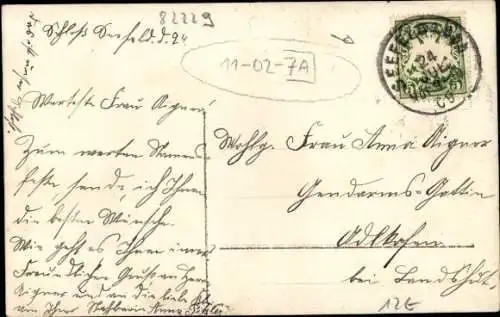 82229
Schloß Seefeld. d. 24
11-02-7A
SEEFELD
24
JUL
Werteste Frau Aigner!
Zum werten Namens
feste, sende, ich Ihnen
die besten Wünsche.
Wie geht es Ihnen immer
Freundlichen Gruß an Herrn
Aigner und an die liebe
von Ihrer Anna
Wohlg. Frau Anna Aigner
Gendarms-Gattin
Adlkofen
bei Landshut.
12E